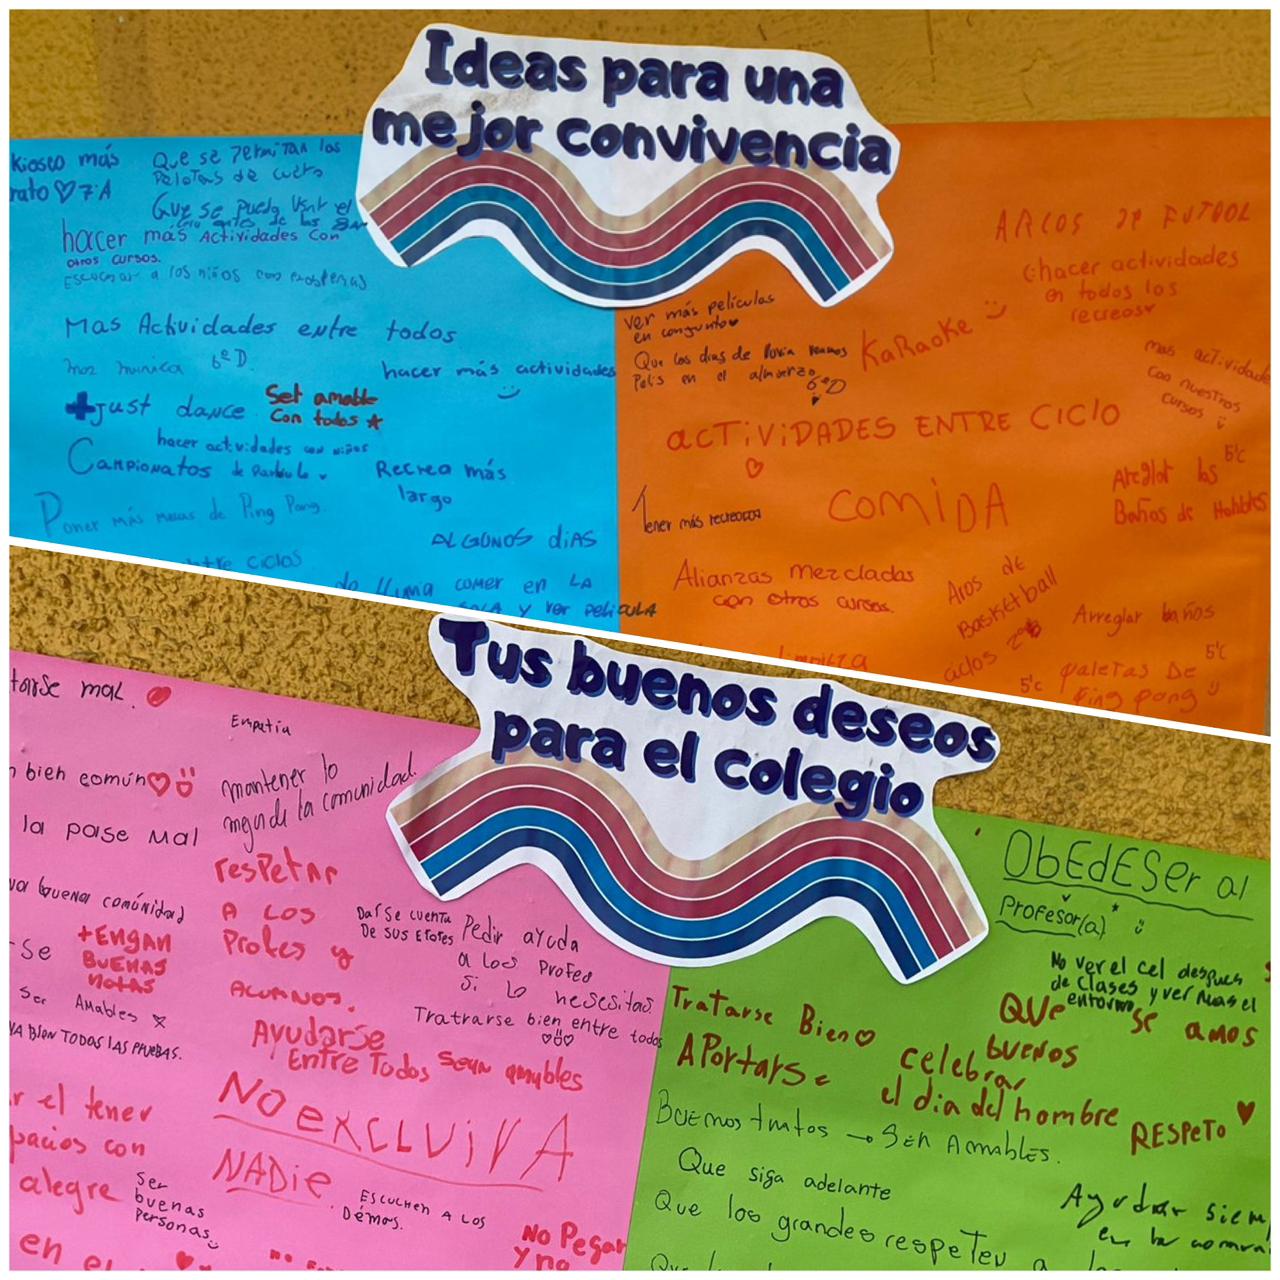 Ideas para una
mejor convivencia
kiosco más
rato ♡ 7ºA
Que se permitan las
pelotas de cuero
Que se pueda usar el
hacer mas Actividades con
otros cursos.
Escuchar a los niños con problemas
Mas Actividades entre todos
6ºD.
hacer más actividades
+just dance
Ser amable
con todos ★
hacer actividades con niños
Campionatos de
Recreo más
largo
Poner más mesas de Ping Pong.
ciclos
ALGUNOS diAS
de lluvia comer en LA
SALA y ver peliCULA
ARCOS DE FUTBOL
hacer actividades
en todos los
recreos♥
ver más películas
en conjunto♥
Que los dias de lluvia veamos
Pelis en el almuerzo
6ºD
KaRaoke
mas actividade
con nuestros
cursos
acTiViDADES ENTRE CICLO
COMiDA
Areglar los
5ºc
Baños de Hombres
Tener más recreooos
Alianzas mezcladas
con otros cursos.
Aros de
Basketball
ciclos
Arreglar baños
5ºc
limpieza
5ºc paletas De
Ping pong
Tus buenos deseos
para el colegio
tarse mal.
Empatía
bien común♡
mantener lo
mejor de la comunidad.
la pase mal
respetar
A Los
Profes y
Alumnos.
buena comúnidad
se
+ENGAN
BUENAS
NOTAS
Darse cuenta
De sus
Pedir ayuda
a los profes
si lo nesesitas
Ser Amables
VA BIEN TODAS LAS PRUEBAS.
Tratrarse bien entre todos
Ayudarse
Entre Todos
sean amables
NO EXCLUiR A
NADie.
r el tener
pacios con
alegre
Ser
buenas
personas
Escuchen a los
Démas.
en el
No Pegar
y no
ObEdESer al
Profesor(a)
No ver el cel despues
de clases y ver mas el
entorno
Tratarse Bien♡
QUE SE AMOS
BUENOS
APortarse
celebrar
el dia del hombre
RESPETO ♥
Buenos tratos → Ser Amables.
Que siga adelante
Ayudar siem
en la
Que los grandes respeten a